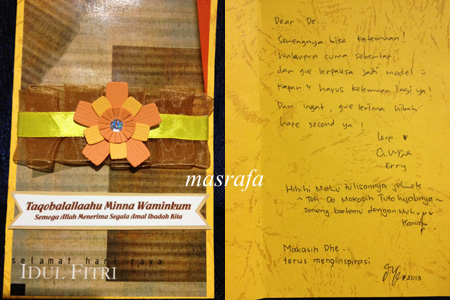 Taqobalallaahu Minna Waminkum
Semoga Allah Menerima Segala Amal Ibadah Kita
selamat hari raya
IDUL FITRI
masrafa
Dear De...
Senengnya bisa ketemuan!
Walaupun cuma sebentar
dan gue terpaksa jadi model
Kapan" harus ketemuan lagi ya!
Dan ingat, gue terima hibah
hape second ya!
Love ♥
Erry
Hihihi Malu tulisannya jelek
Tuti De Makasih Tuto hijabnya
senang bertemu dengan
Makasih Dhe...
terus menginspirasi
2013